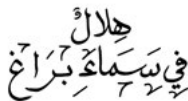 هِلَالٌ
فِي سَمَاءِ بَرَاغ